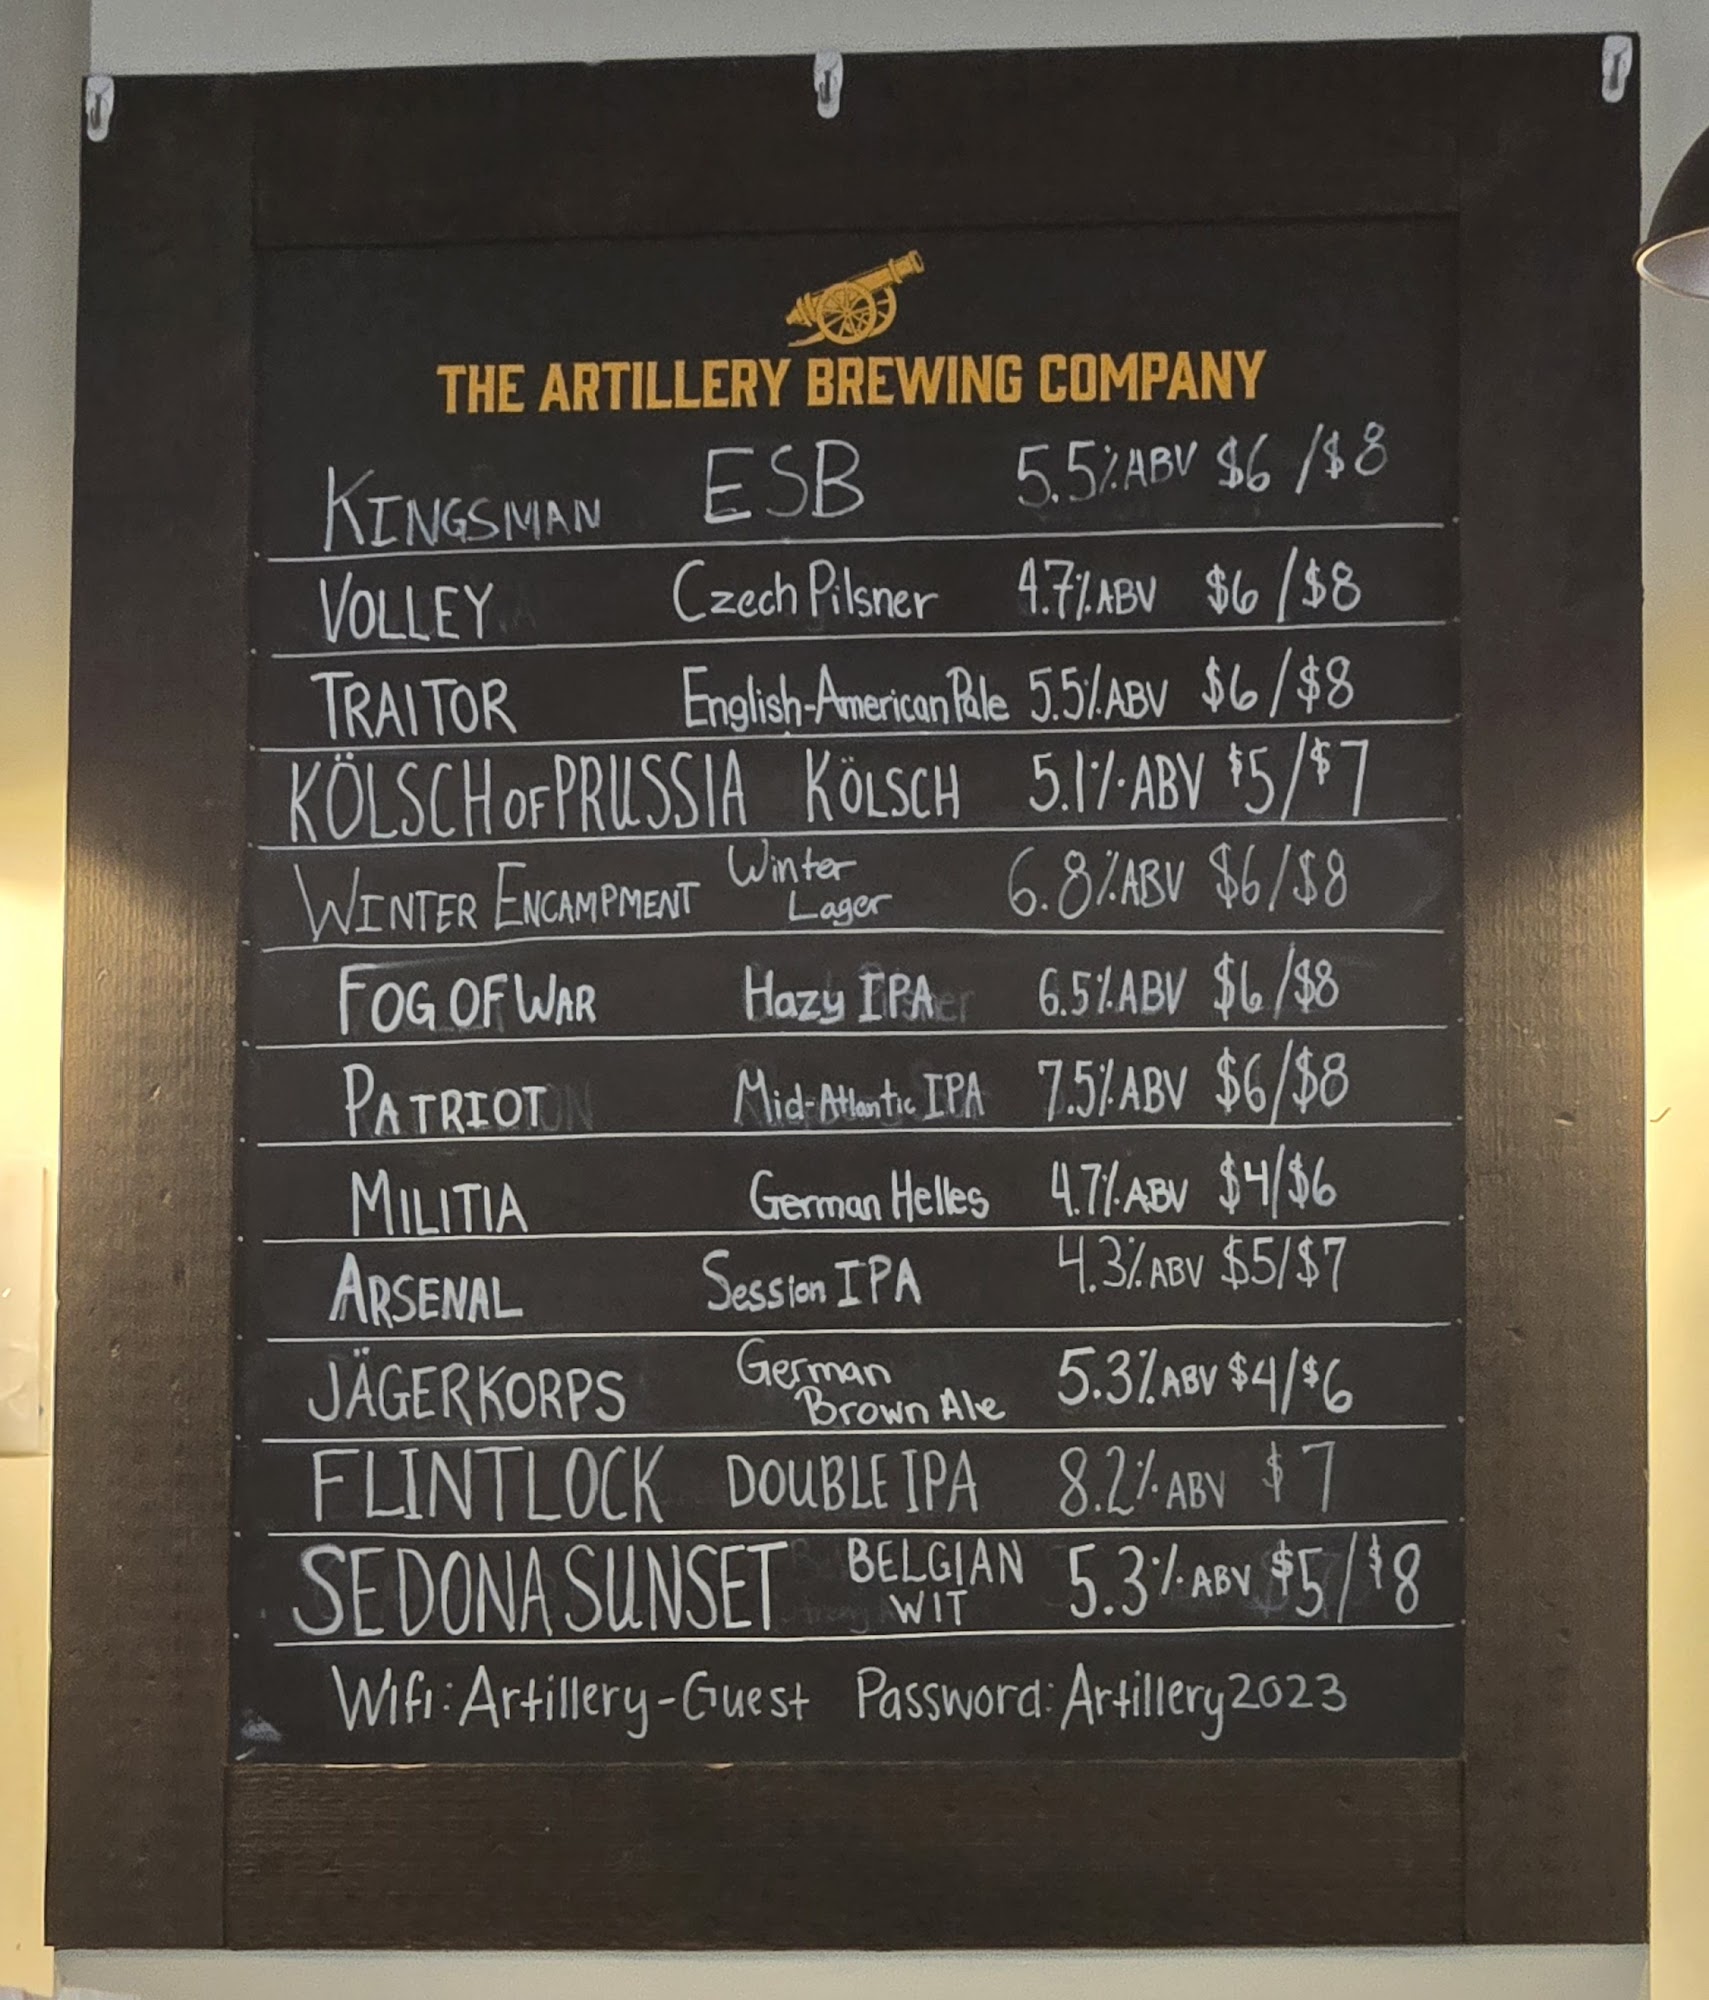 THE ARTILLERY BREWING COMPANY
KINGSMAN ESB 5.5% ABV $6 / $8
VOLLEY Czech Pilsner 4.7% ABV $6 / $8
TRAITOR English-American Pale 5.5% ABV $6 / $8
KÖLSCH OF PRUSSIA KÖLSCH 5.1% ABV $5 / $7
WINTER ENCAMPMENT Winter Lager 6.8% ABV $6 / $8
FOG OF WAR Hazy IPA 6.5% ABV $6 / $8
PATRIOT Mid-Atlantic IPA 7.5% ABV $6 / $8
MILITIA German Helles 4.7% ABV $4 / $6
ARSENAL Session IPA 4.3% ABV $5 / $7
JÄGERKORPS German Brown Ale 5.3% ABV $4 / $6
FLINTLOCK DOUBLE IPA 8.2% ABV $7
SEDONA SUNSET BELGIAN WIT 5.3% ABV $5 / $8
Wifi: Artillery-Guest Password: Artillery2023